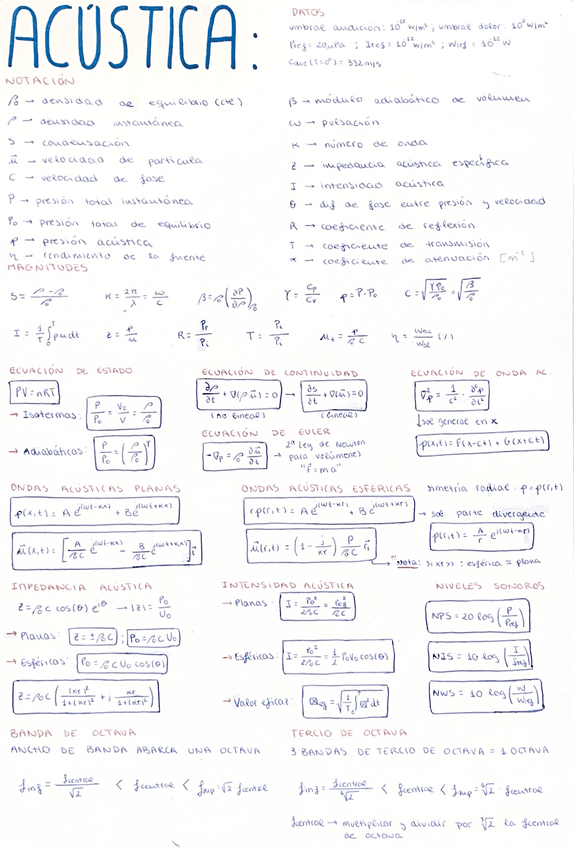 ACÚSTICA:
DATOS
umbral audición: 10^12 W/m²; umbral dolor: 10² W/m²
Pref = 20μPa ; Iref = 10^12 W/m² ; Wref = 10^12 W
Caire (T=0º) = 332 m/s
NOTACIÓN
ρ₀ → densidad de equilibrio (cte)
ρ → densidad instantánea
S → condensación
u⃗ → velocidad de partícula
C → velocidad de fase
P → presión total instantánea
P₀ → presión total de equilibrio
p → presión acústica
η → rendimiento de la fuente
β → módulo adiabático de volumen
ω → pulsación
K → número de onda
Z → impedancia acústica específica
I → intensidad acústica
θ → dif de fase entre presión y velocidad
R → coeficiente de reflexión
T → coeficiente de transmisión
α → coeficiente de atenuación [m⁻¹]
MAGNITUDES
S = (ρ-ρ₀)/ρ₀
K = 2π/λ = ω/C
β = ρ₀(∂P/∂ρ)ρ₀
γ = Cp/Cv
p = P-P₀
C = √(γP₀/ρ₀) = √(β/ρ₀)
I = 1/T ∫₀ᵀ pu dt
Z = p/u
R = Pr/Pi
T = Pt/Pi
μ₊ = p/ρ₀C
ECUACIÓN DE ESTADO
PV = nRT
→ Isotermas: P/P₀ = V₀/V = ρ/ρ₀
→ Adiabáticas: P/P₀ = (ρ/ρ₀)^γ
ECUACIÓN DE CONTINUIDAD
∂ρ/∂t + ∇(ρu⃗) = 0 → ∂s/∂t + ∇(u⃗) = 0
(no lineal) (lineal)
ECUACIÓN DE EULER
-∇p = ρ₀ ∂u⃗/∂t
→ 2ª ley de Newton
para volúmenes
"F = m a"
ECUACIÓN DE ONDA AC.
∇²p = 1/C² · ∂²p/∂t²
↓ sol general en x
p(x,t) = F(x-ct) + G(x+ct)
ONDAS ACÚSTICAS PLANAS
p(x,t) = A e^j(ωt-kx) + B e^j(ωt+kx)
u⃗(x,t) = [A/ρ₀C e^j(ωt-kx) - B/ρ₀C e^j(ωt+kx)]
ONDAS ACÚSTICAS ESFÉRICAS
rp(r,t) = A e^j(ωt-kr) + B e^j(ωt+kr)
u⃗(r,t) = (1 - j/kr) P/ρ₀C r⃗
simetría radial: p = p(r,t)
→ sol parte divergente
p(r,t) = A/r e^j(ωt-kr)
Nota: si kr>> : esférica ≈ plana
IMPEDANCIA ACÚSTICA
Z = ρ₀C cos(θ) e^jθ → |Z| = P₀/U₀
→ Planas: Z = ±ρ₀C ; P₀ = ρ₀C U₀
→ Esféricas: P₀ = ρ₀C U₀ cos(θ)
Z = ρ₀C ((kr)²/(1+(kr)²) + j kr/(1+(kr)²))
INTENSIDAD ACÚSTICA
→ Planas: I = P₀²/2ρ₀C = Pef²/ρ₀C
→ Esféricas: I = P₀²/2ρ₀C = 1/2 P₀U₀ cos(θ)
→ Valor eficaz:
NIVELES SONOROS
NPS = 20 log (P/Pref)
NIS = 10 log (I/Iref)
NWS = 10 log (W/Wref)
BANDA DE OCTAVA
ANCHO DE BANDA ABARCA UNA OCTAVA
finf = fcentral/√2 < fcentral < fsup = √2 fcentral
TERCIO DE OCTAVA
3 BANDAS DE TERCIO DE OCTAVA = 1 OCTAVA
finf = fcentral/⁶√2 < fcentral < fsup = ⁶√2 · fcentral
fcentral → multiplicar y dividir por ³√2 la fcentral
de octava